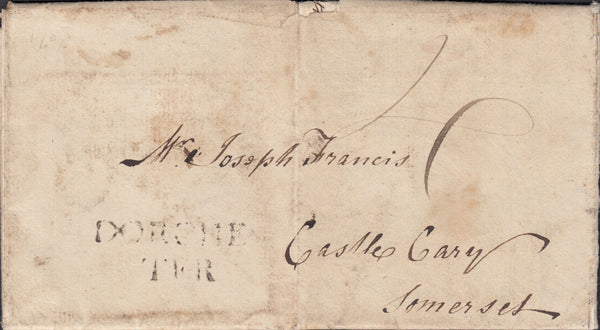 Mr. Joseph Francis
Castle Cary
Somerset
DORCHE
TER